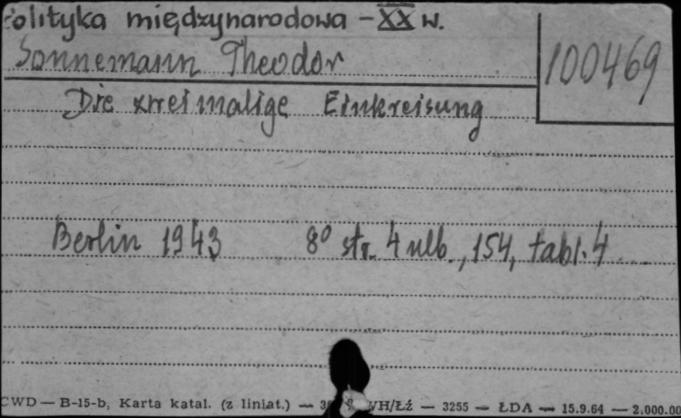 Polityka międzynarodowa – XX w.
Sonnemann Theodor
100469
Die zweimalige Einkreisung
Berlin 1943 8° str. 4 nlb., 154, tabl. 4
CWD — B-15-b, Karta katal. (z liniat.) — VH/Łź — 3255 — ŁDA — 15.9.64 — 2.000.00